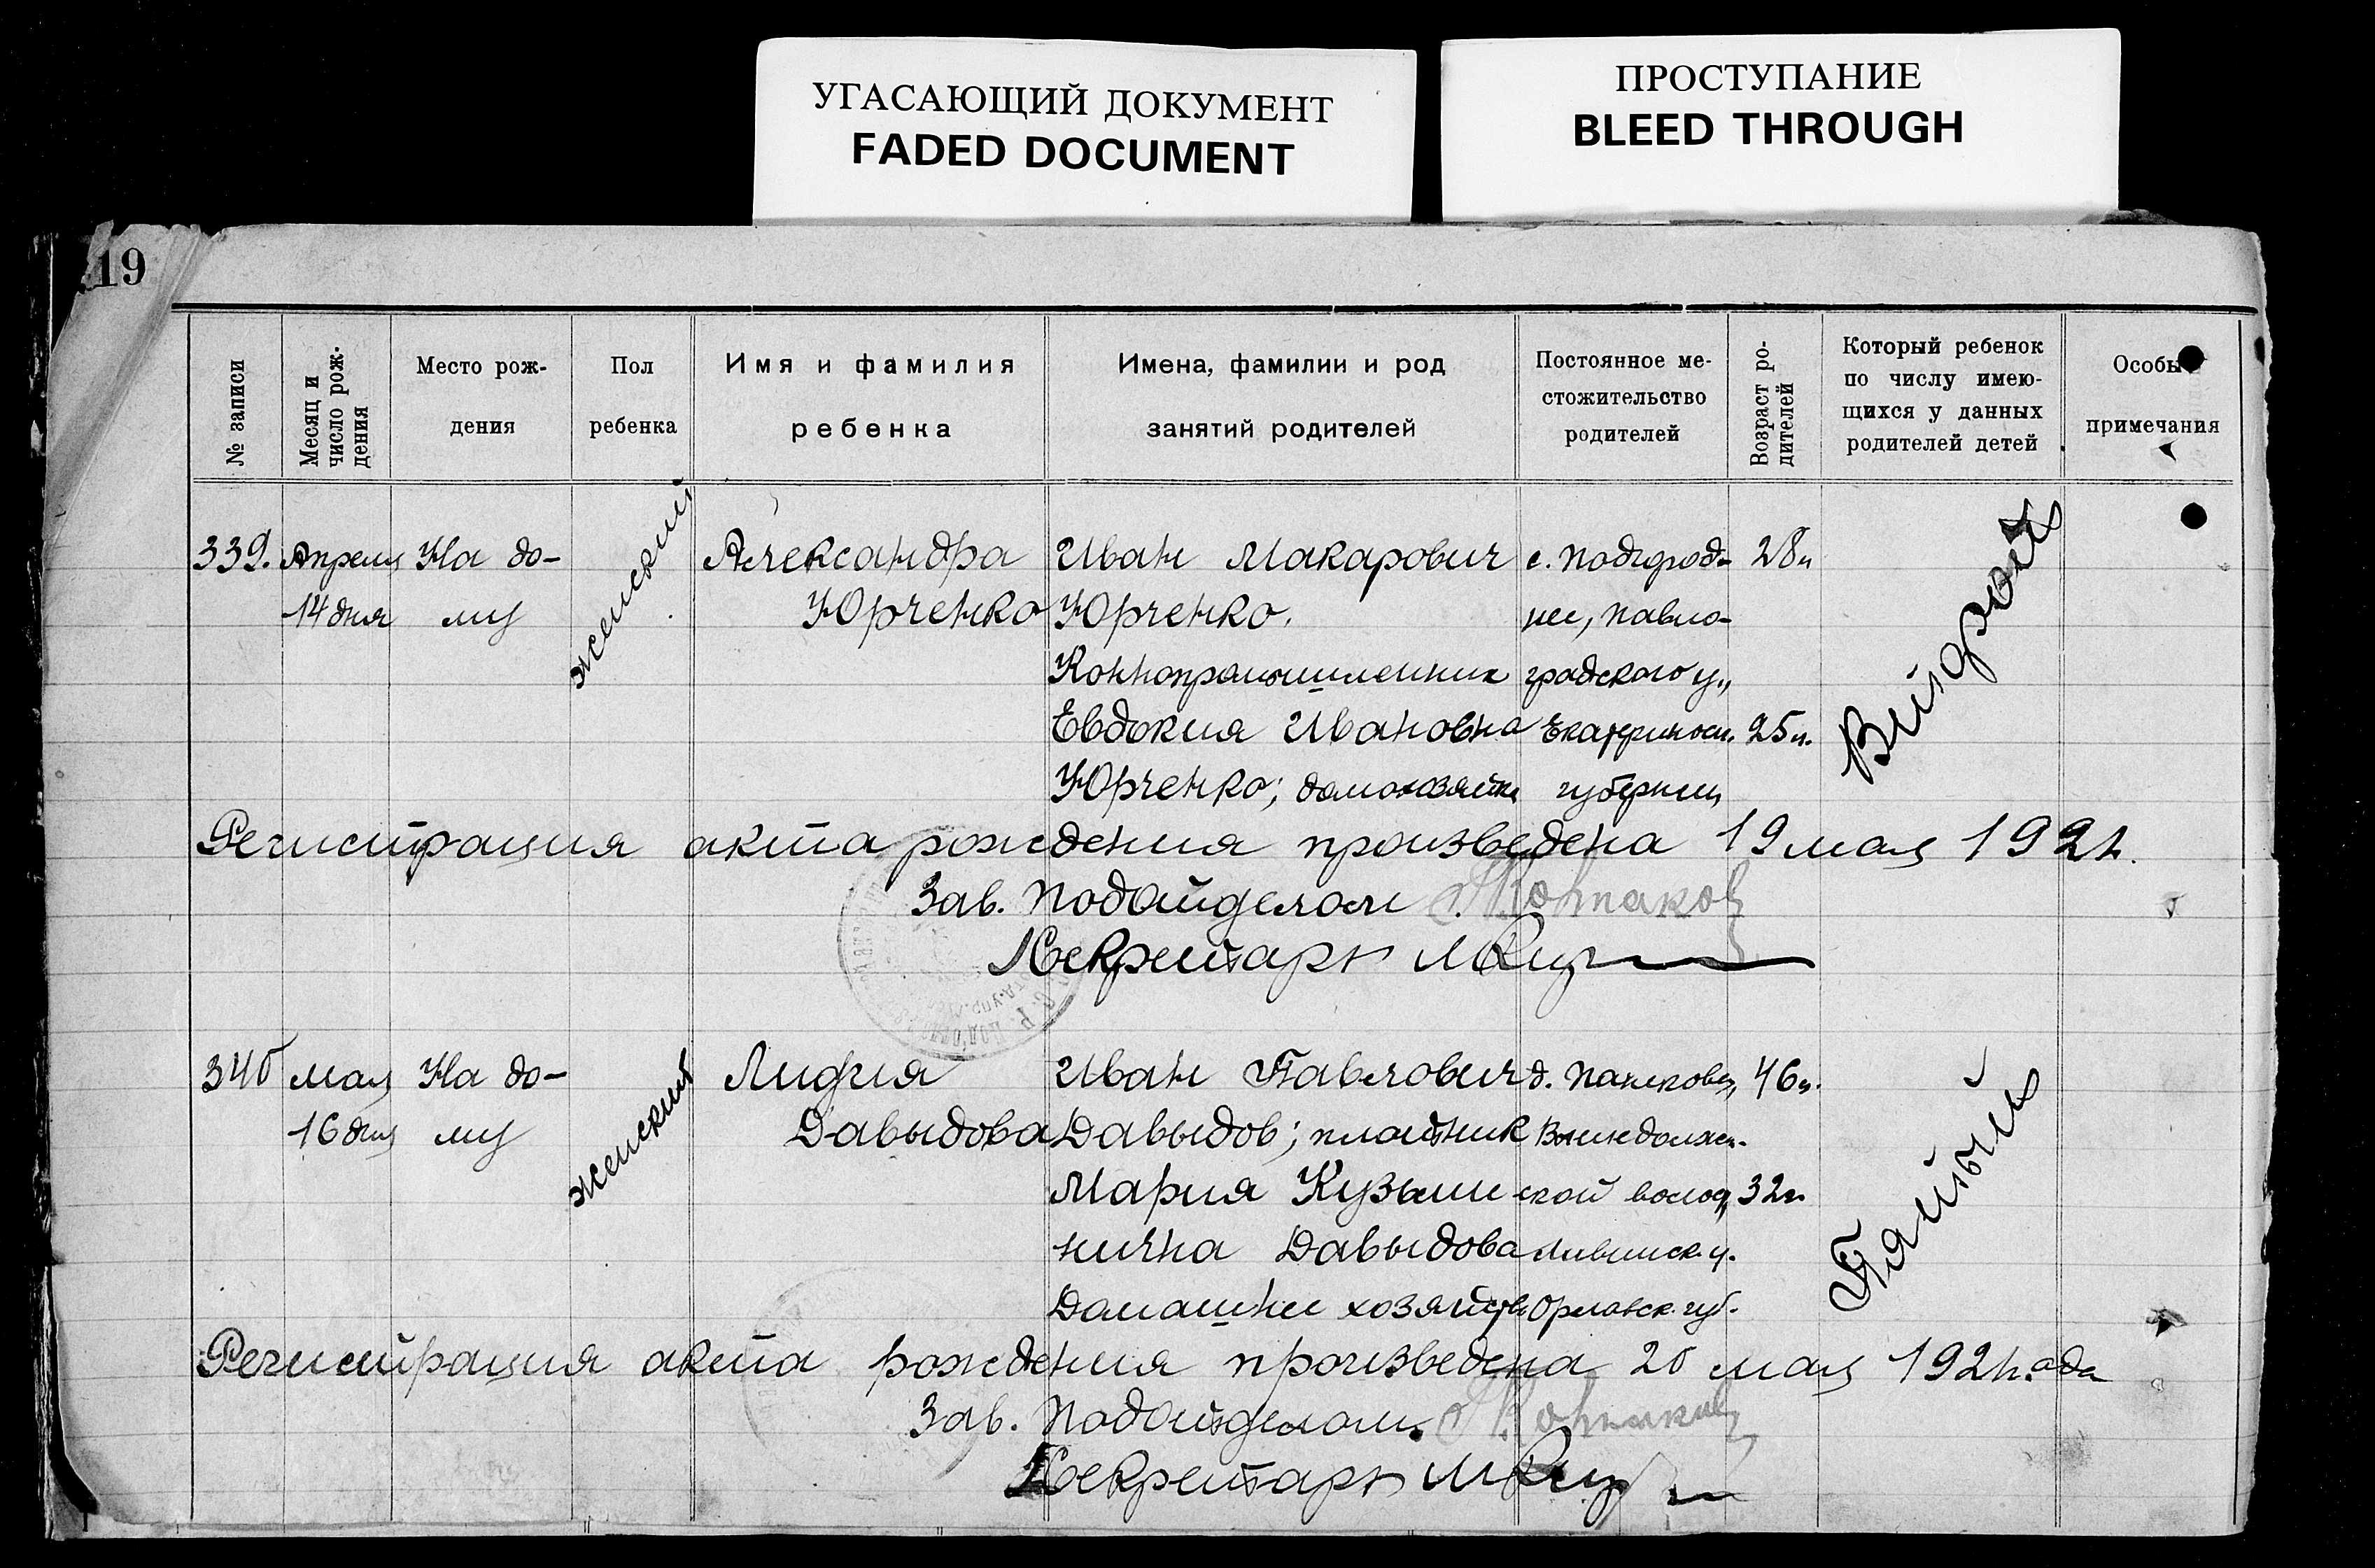 УГАСАЮЩИЙ ДОКУМЕНТ
FADED DOCUMENT
ПРОСТУПАНИЕ
BLEED THROUGH
19
№ записи
Месяц и
число рож-
дения
Место рож-
дения
Пол
ребенка
Имя и фамилия
ребенка
Имена, фамилии и род
занятий родителей
Постоянное ме-
стожительство
родителей
Возраст ро-
дителей
Который ребенок
по числу имею-
щихся у данных
родителей детей
Особы
примечания
339.
Апреля
14 дня
На до-
му
женский
Александра
Юрченко
Иван Макарович
Юрченко.
Коннопромышленник
Евдокия Ивановна
Юрченко; домохозяйка
с. Подгород-
нее, Павло-
градского у.,
Екатеринос.
губернии
28 л.
25 л.
Второй
Регистрация акта рождения произведена 19 мая 192 г.
Зав. Подотделом
Секретарь
340
мая
16 дня
На до-
му
женский
Лидия
Давыдова
Иван Павлович
Давыдов; плотник
Мария Кузьми
нична Давыдова
Домашнее хозяйство
д.
ской волос,
Ливинск. у.
Орловск. губ.
46 л.
32 г.
Пятый
Регистрация акта рождения произведена 20 мая 192 года
Зав. Подотделом.
Секретарь